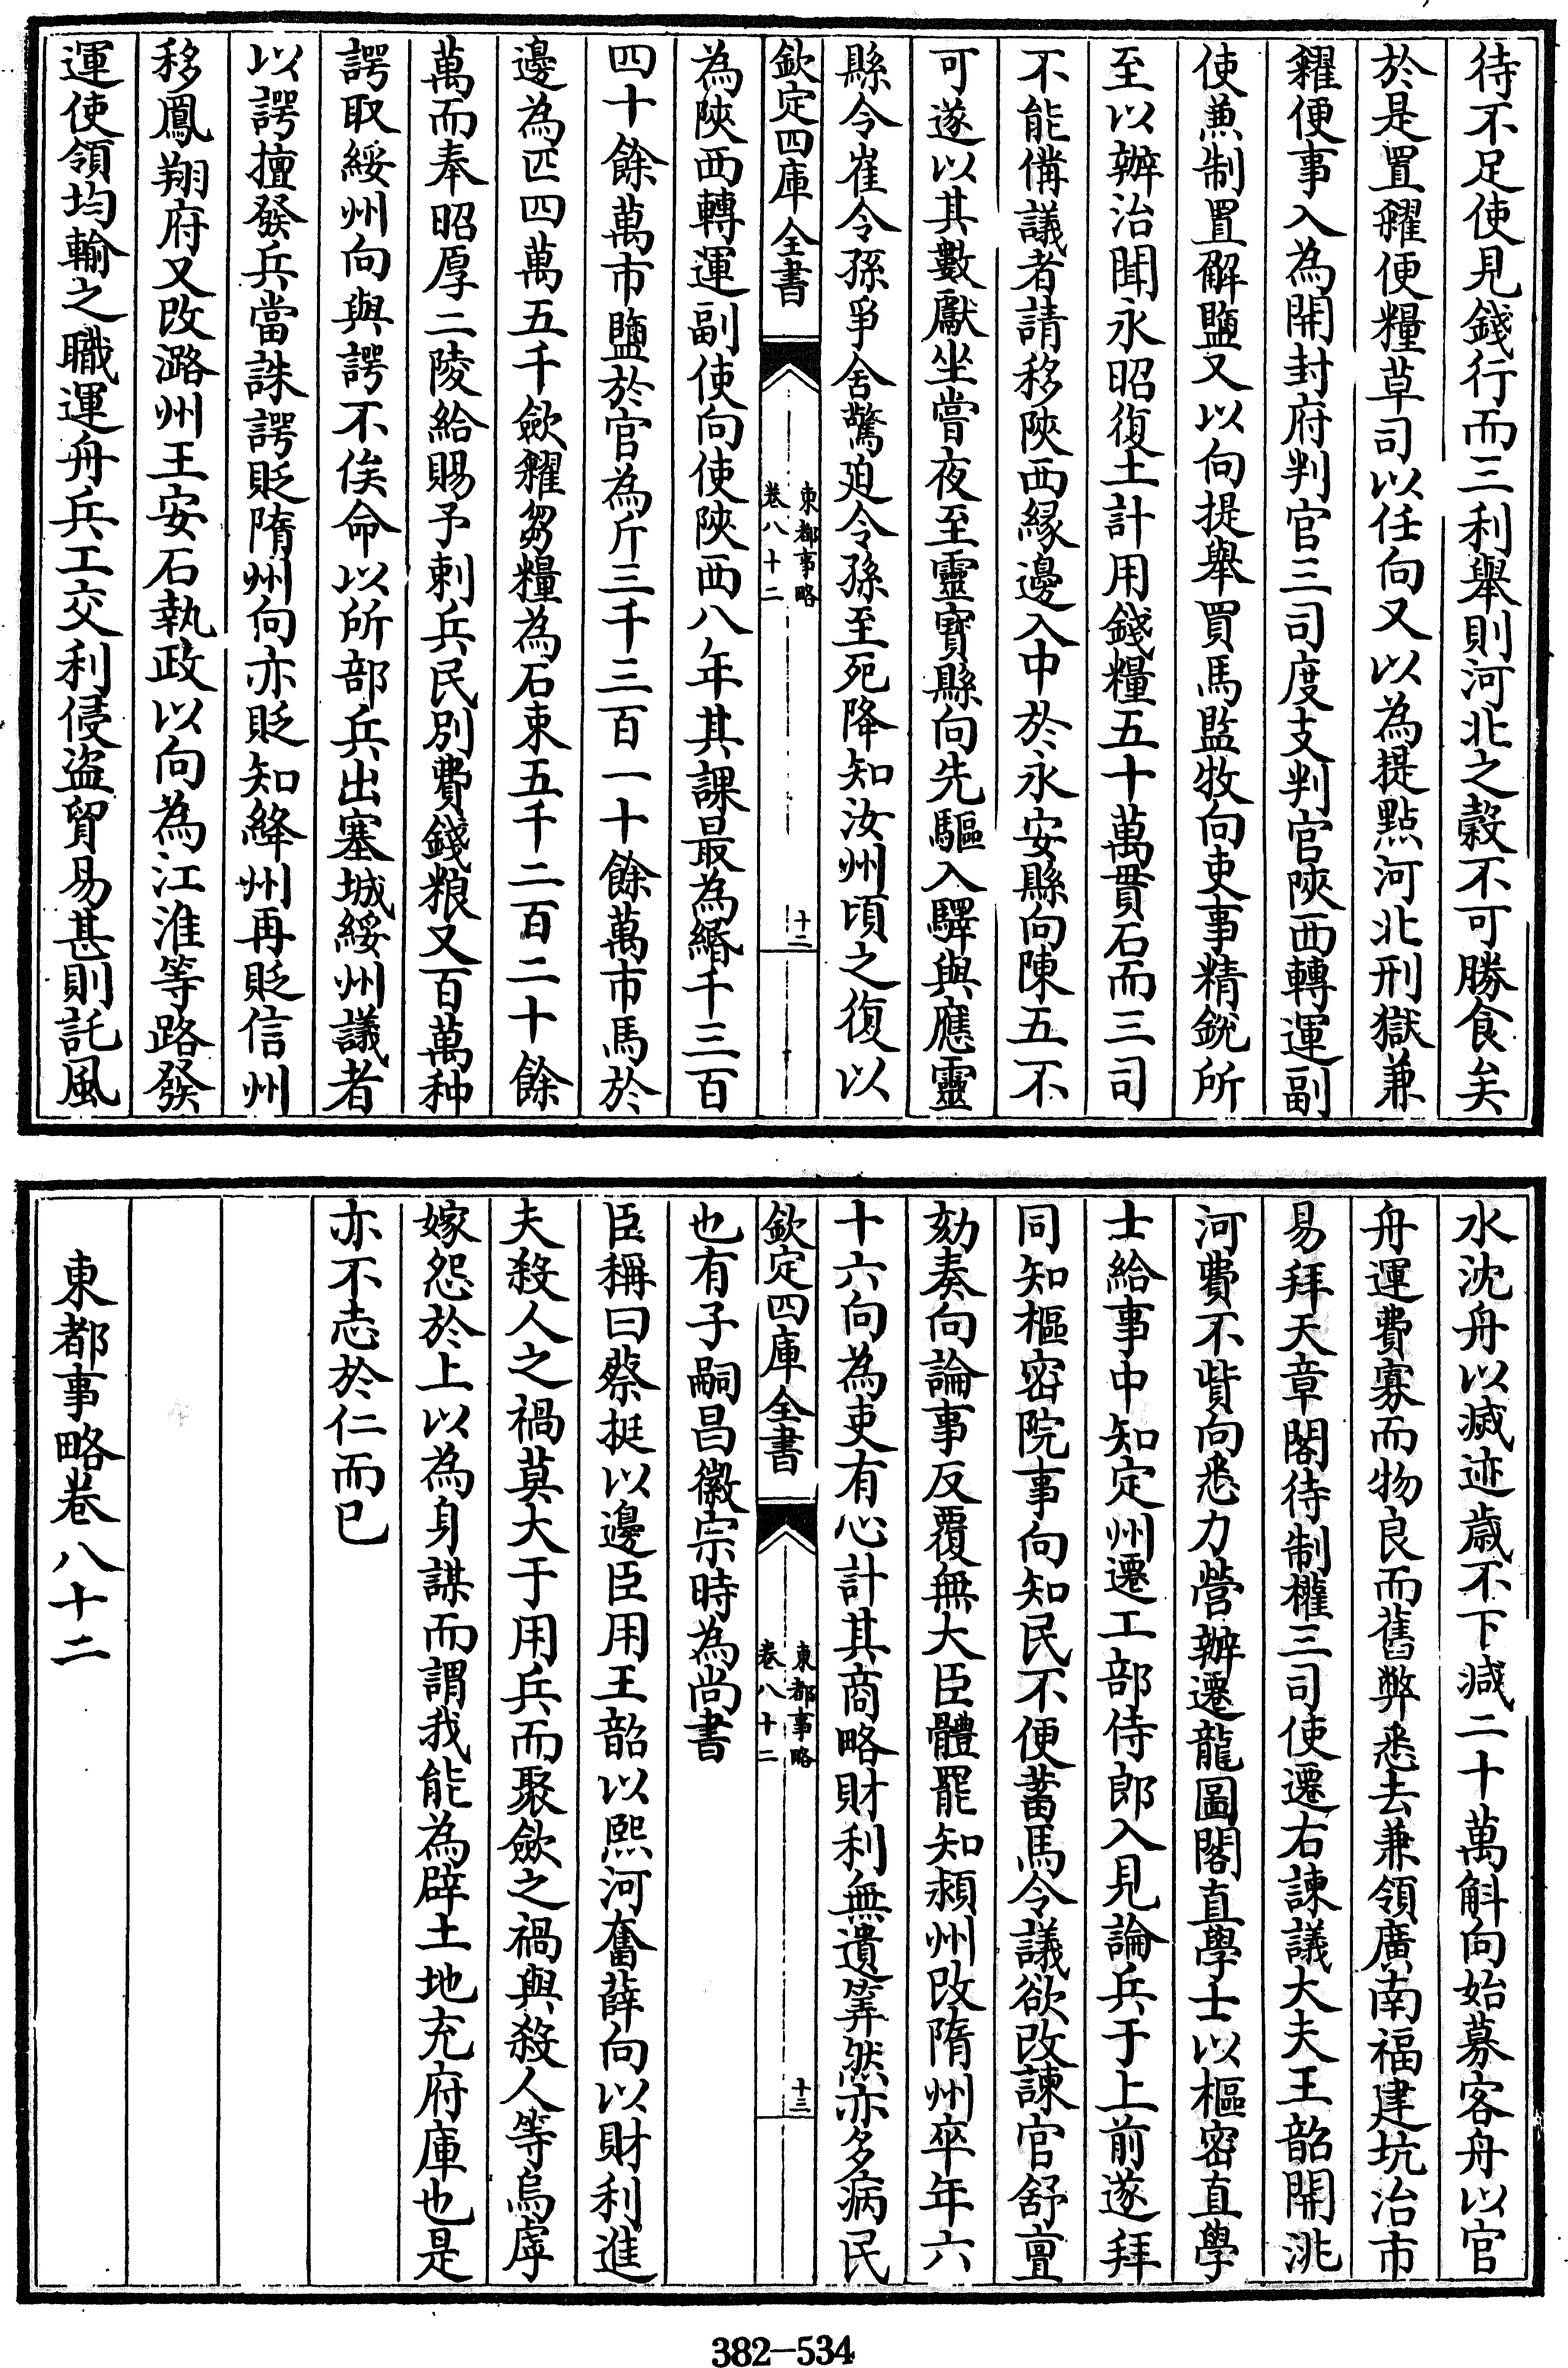 待不足使見錢行而三利舉則河北之穀不可勝食矣
於是置糴便糧草司以任向又以為提㸃河北刑獄兼
糴便事入為開封府判官三司度支判官陜西轉運副
使兼制置解鹽又以向提舉買馬監牧向吏事精銳所
至以辦治聞永昭復土計用錢糧五十萬貫石而三司
不能備議者請移陜西縁邊入中於永安縣向陳五不
可遂以其數獻坐嘗夜至靈寶縣向先驅入驛與應靈
縣令崔令孫爭舎驚廹令孫至死降知汝州頃之復以
欽定四庫全書
東都事略
卷八十二
十二
為陜西轉運副使向使陜西八年其課最為緡千三百
四十餘萬市鹽於官為斤三千三百一十餘萬市馬於
邊為匹四萬五千歛糴芻糧為石束五千二百二十餘
萬而奉昭厚二陵給賜予刺兵民别費錢粮又百萬种
諤取綏州向與諤不俟命以所部兵出塞城綏州議者
以諤擅發兵當誅諤貶隋州向亦貶知絳州再貶信州
移鳳翔府又改潞州王安石執政以向為江淮等路發
運使領均輸之職運舟兵工交利侵盜貿易甚則託風
水沈舟以滅迹歲不下減二十萬斛向始募客舟以官
舟運費寡而物良而舊弊悉去兼領廣南福建坑冶市
易拜天章閣待制權三司使遷右諫議大夫王韶開洮
河費不貲向悉力營辦遷龍圖閣直學士以樞密直學
士給事中知定州遷工部侍郎入見論兵于上前遂拜
同知樞密院事向知民不便蓄馬令議欲改諫官舒亶
劾奏向論事反覆無大臣體罷知潁州改隋州卒年六
十六向為吏有心計其商略財利無遺筭然亦多病民
欽定四庫全書
東都事略
卷八十二
十三
也有子嗣昌徽宗時為尚書
臣稱曰蔡挺以邊臣用王韶以熙河奮薛向以財利進
夫殺人之禍莫大于用兵而聚歛之禍與殺人等烏虖
嫁怨於上以為身謀而謂我能為辟土地充府庫也是
亦不志於仁而已
東都事略卷八十二
382-534